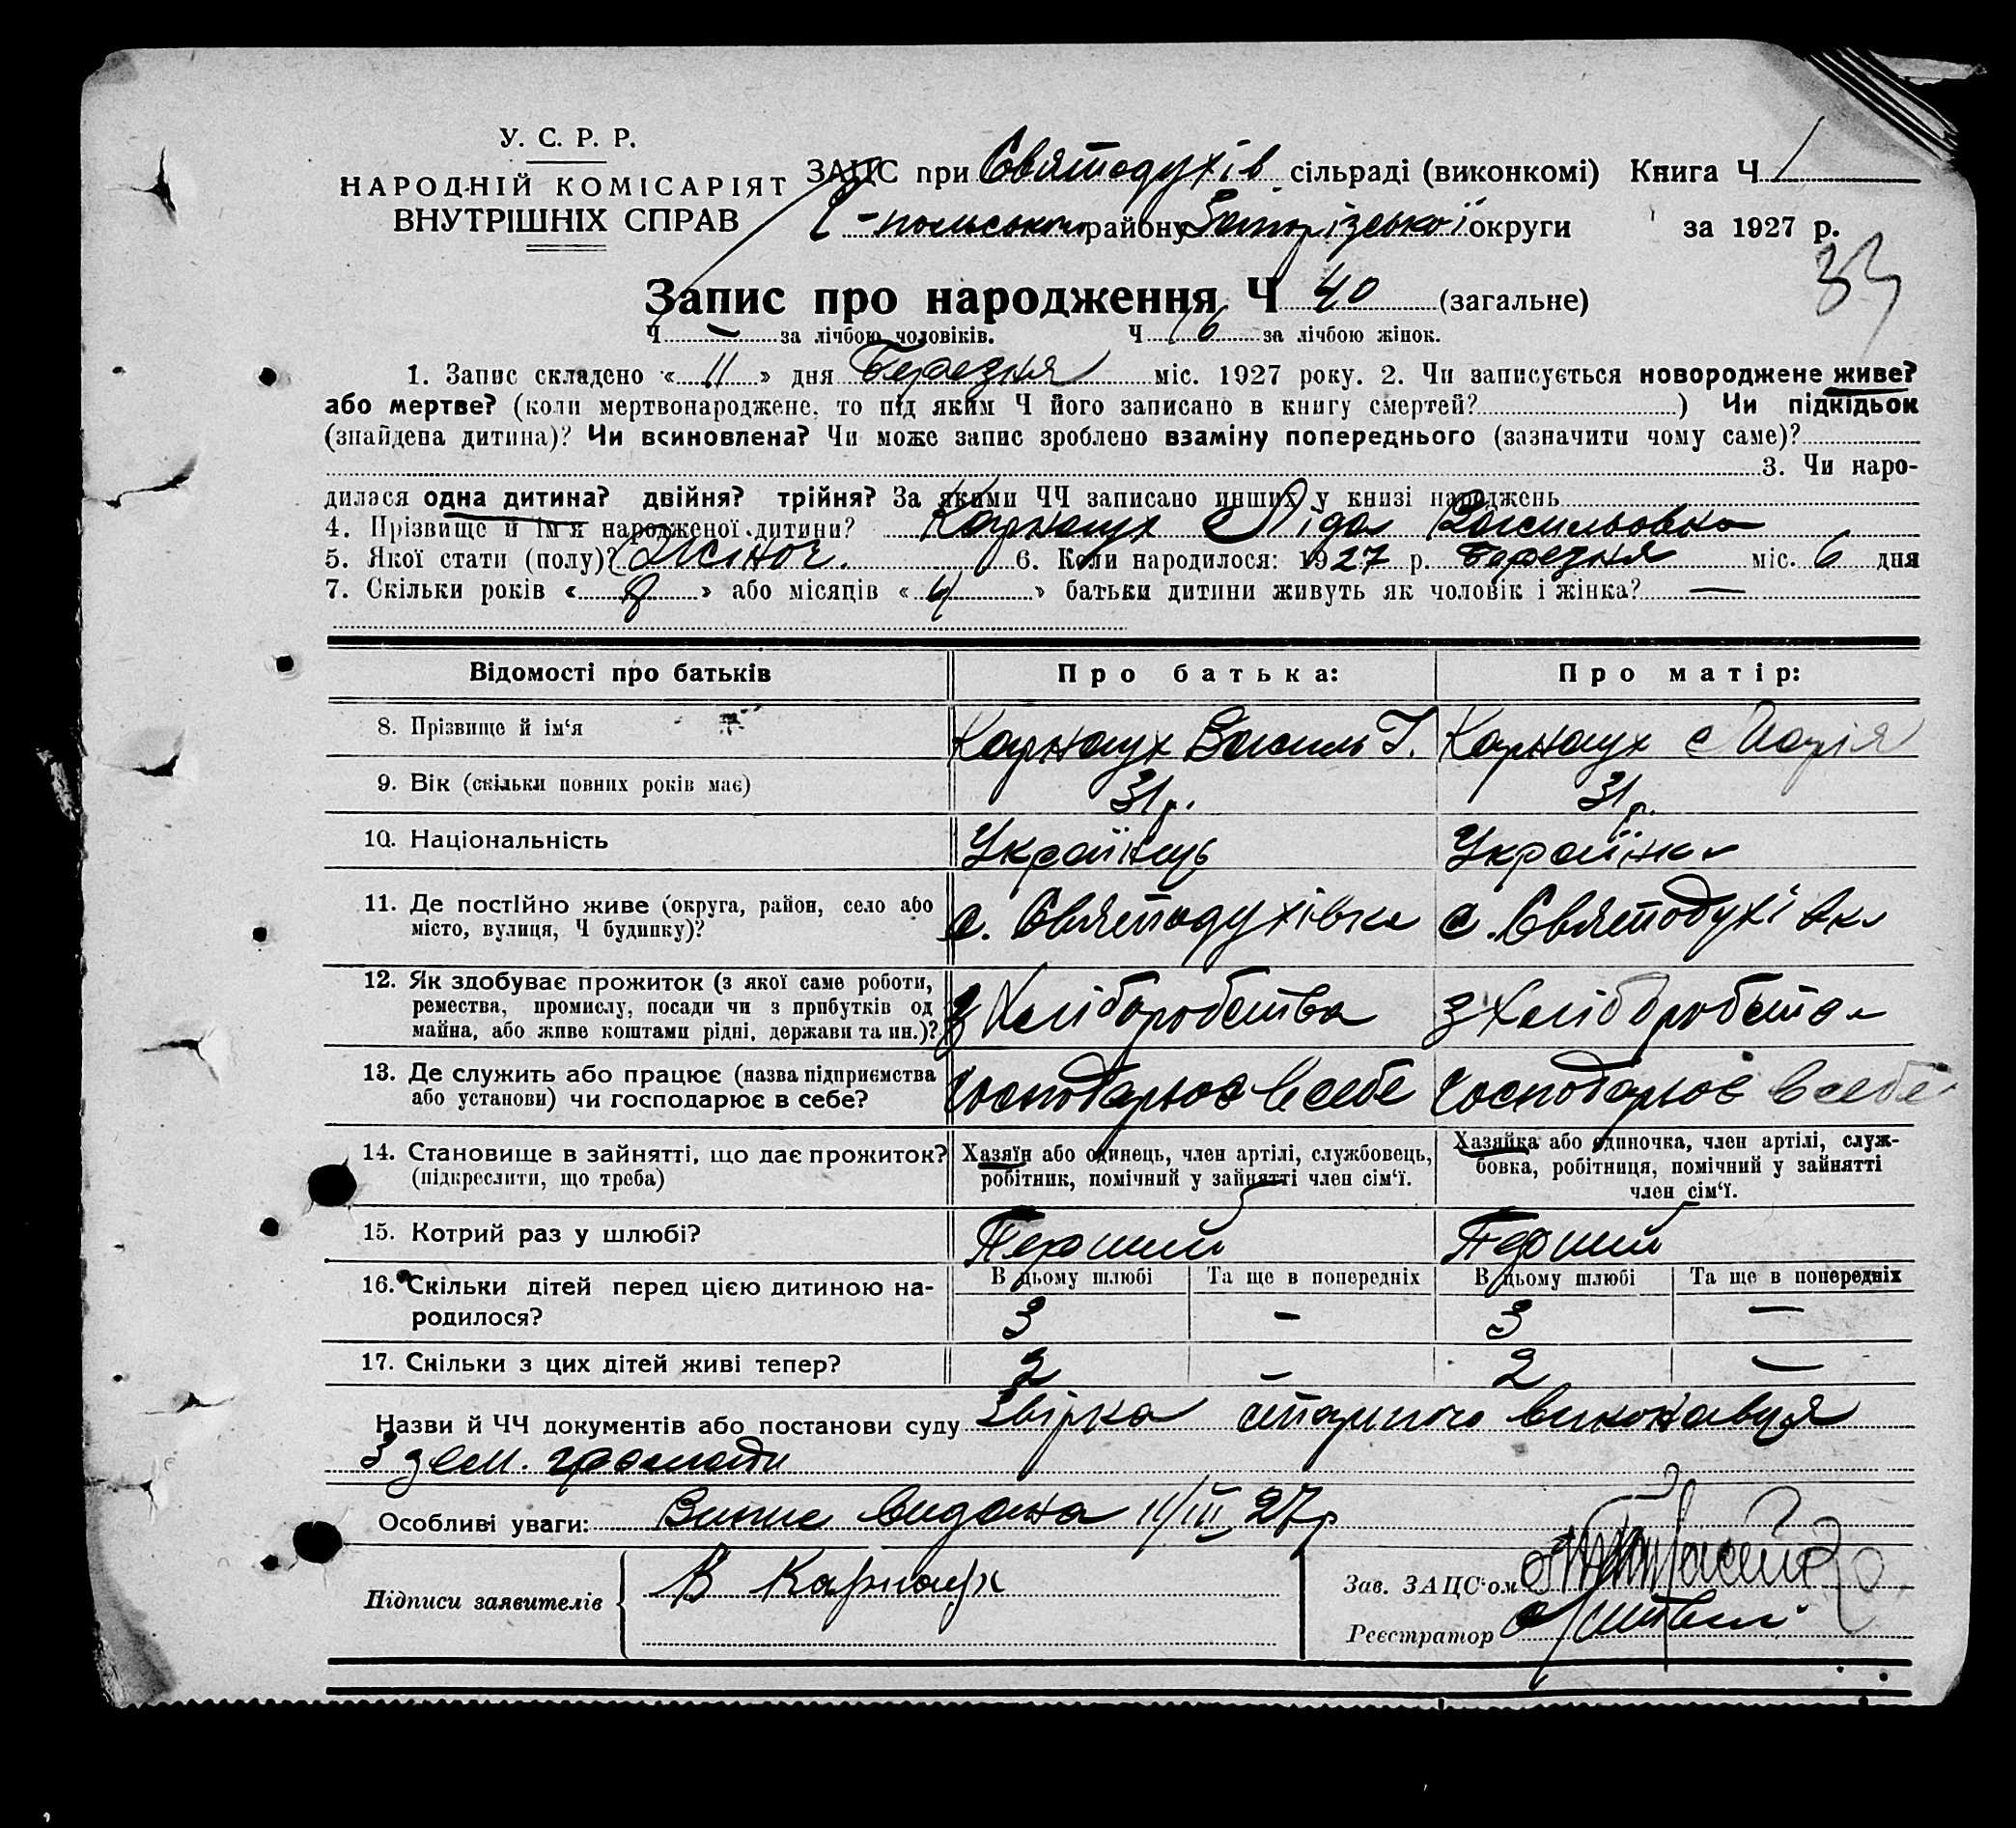 У. С. Р. Р.
НАРОДНІЙ КОМІСАРІЯТ
ВНУТРІШНІХ СПРАВ
ЗАЦС при Святодухів сільраді (виконкомі) Книга Ч 1
району Запорізської округи за 1927 р.
33
Запис про народження Ч 40 (загальне)
Ч — за лічбою чоловіків. Ч 16 за лічбою жінок.
1. Запис складено « 11 » дня Березня міс. 1927 року. 2. Чи записується новороджене живе?
або мертве? (коли мертвонароджене, то під яким Ч його записано в книгу смертей? ) Чи підкідьок
(знайдена дитина)? Чи всиновлена? Чи може запис зроблено взаміну попереднього (зазначити чому саме)?
3. Чи наро-
дилася одна дитина? двійня? трійня? За якими ЧЧ записано инших у книзі народжень
4. Прізвище й ім'я народженої дитини? Карнаух Ліда Васильовна
5. Якої стати (полу)? Жіноч. 6. Коли народилося: 1927 р. Березня міс. 6 дня
7. Скільки років « 8 » або місяців « 4 » батьки дитини живуть як чоловік і жінка? —
Відомості про батьків Про батька: Про матір:
8. Прізвище й ім'я Карнаух Василь І. Карнаух Марія
9. Вік (скільки повних років має) 31 р. 31 р.
10. Національність Українець Українка
11. Де постійно живе (округа, район, село або
місто, вулиця, Ч будинку)? с. Святодухівка с. Святодухівка
12. Як здобуває прожиток (з якої саме роботи,
ремества, промислу, посади чи з прибутків од
майна, або живе коштами рідні, держави та ин.)? З Хліборобства З Хліборобства
13. Де служить або працює (назва підприємства
або установи) чи господарює в себе? господарює в себе господарює в себе
14. Становище в зайнятті, що дає прожиток?
(підкреслити, що треба)
Хазяїн або одинець, член артілі, службовець,
робітник, помічний у зайнятті член сім'ї.
Хазяйка або одиночка, член артілі, служ-
бовка, робітниця, помічний у зайнятті
член сім'ї.
15. Котрий раз у шлюбі? Перший Перший
16. Скільки дітей перед цією дитиною на-
родилося?
В цьому шлюбі Та ще в попередніх В цьому шлюбі Та ще в попередніх
3 — 3 —
17. Скільки з цих дітей живі тепер? 2 — 2 —
Назви й ЧЧ документів або постанови суду Звірка виконавця
З зем. громади
Особливі уваги: Випис видана 11/III 27 р
Підписи заявителів В Карнаух
Зав. ЗАЦС'ом
Реєстратор